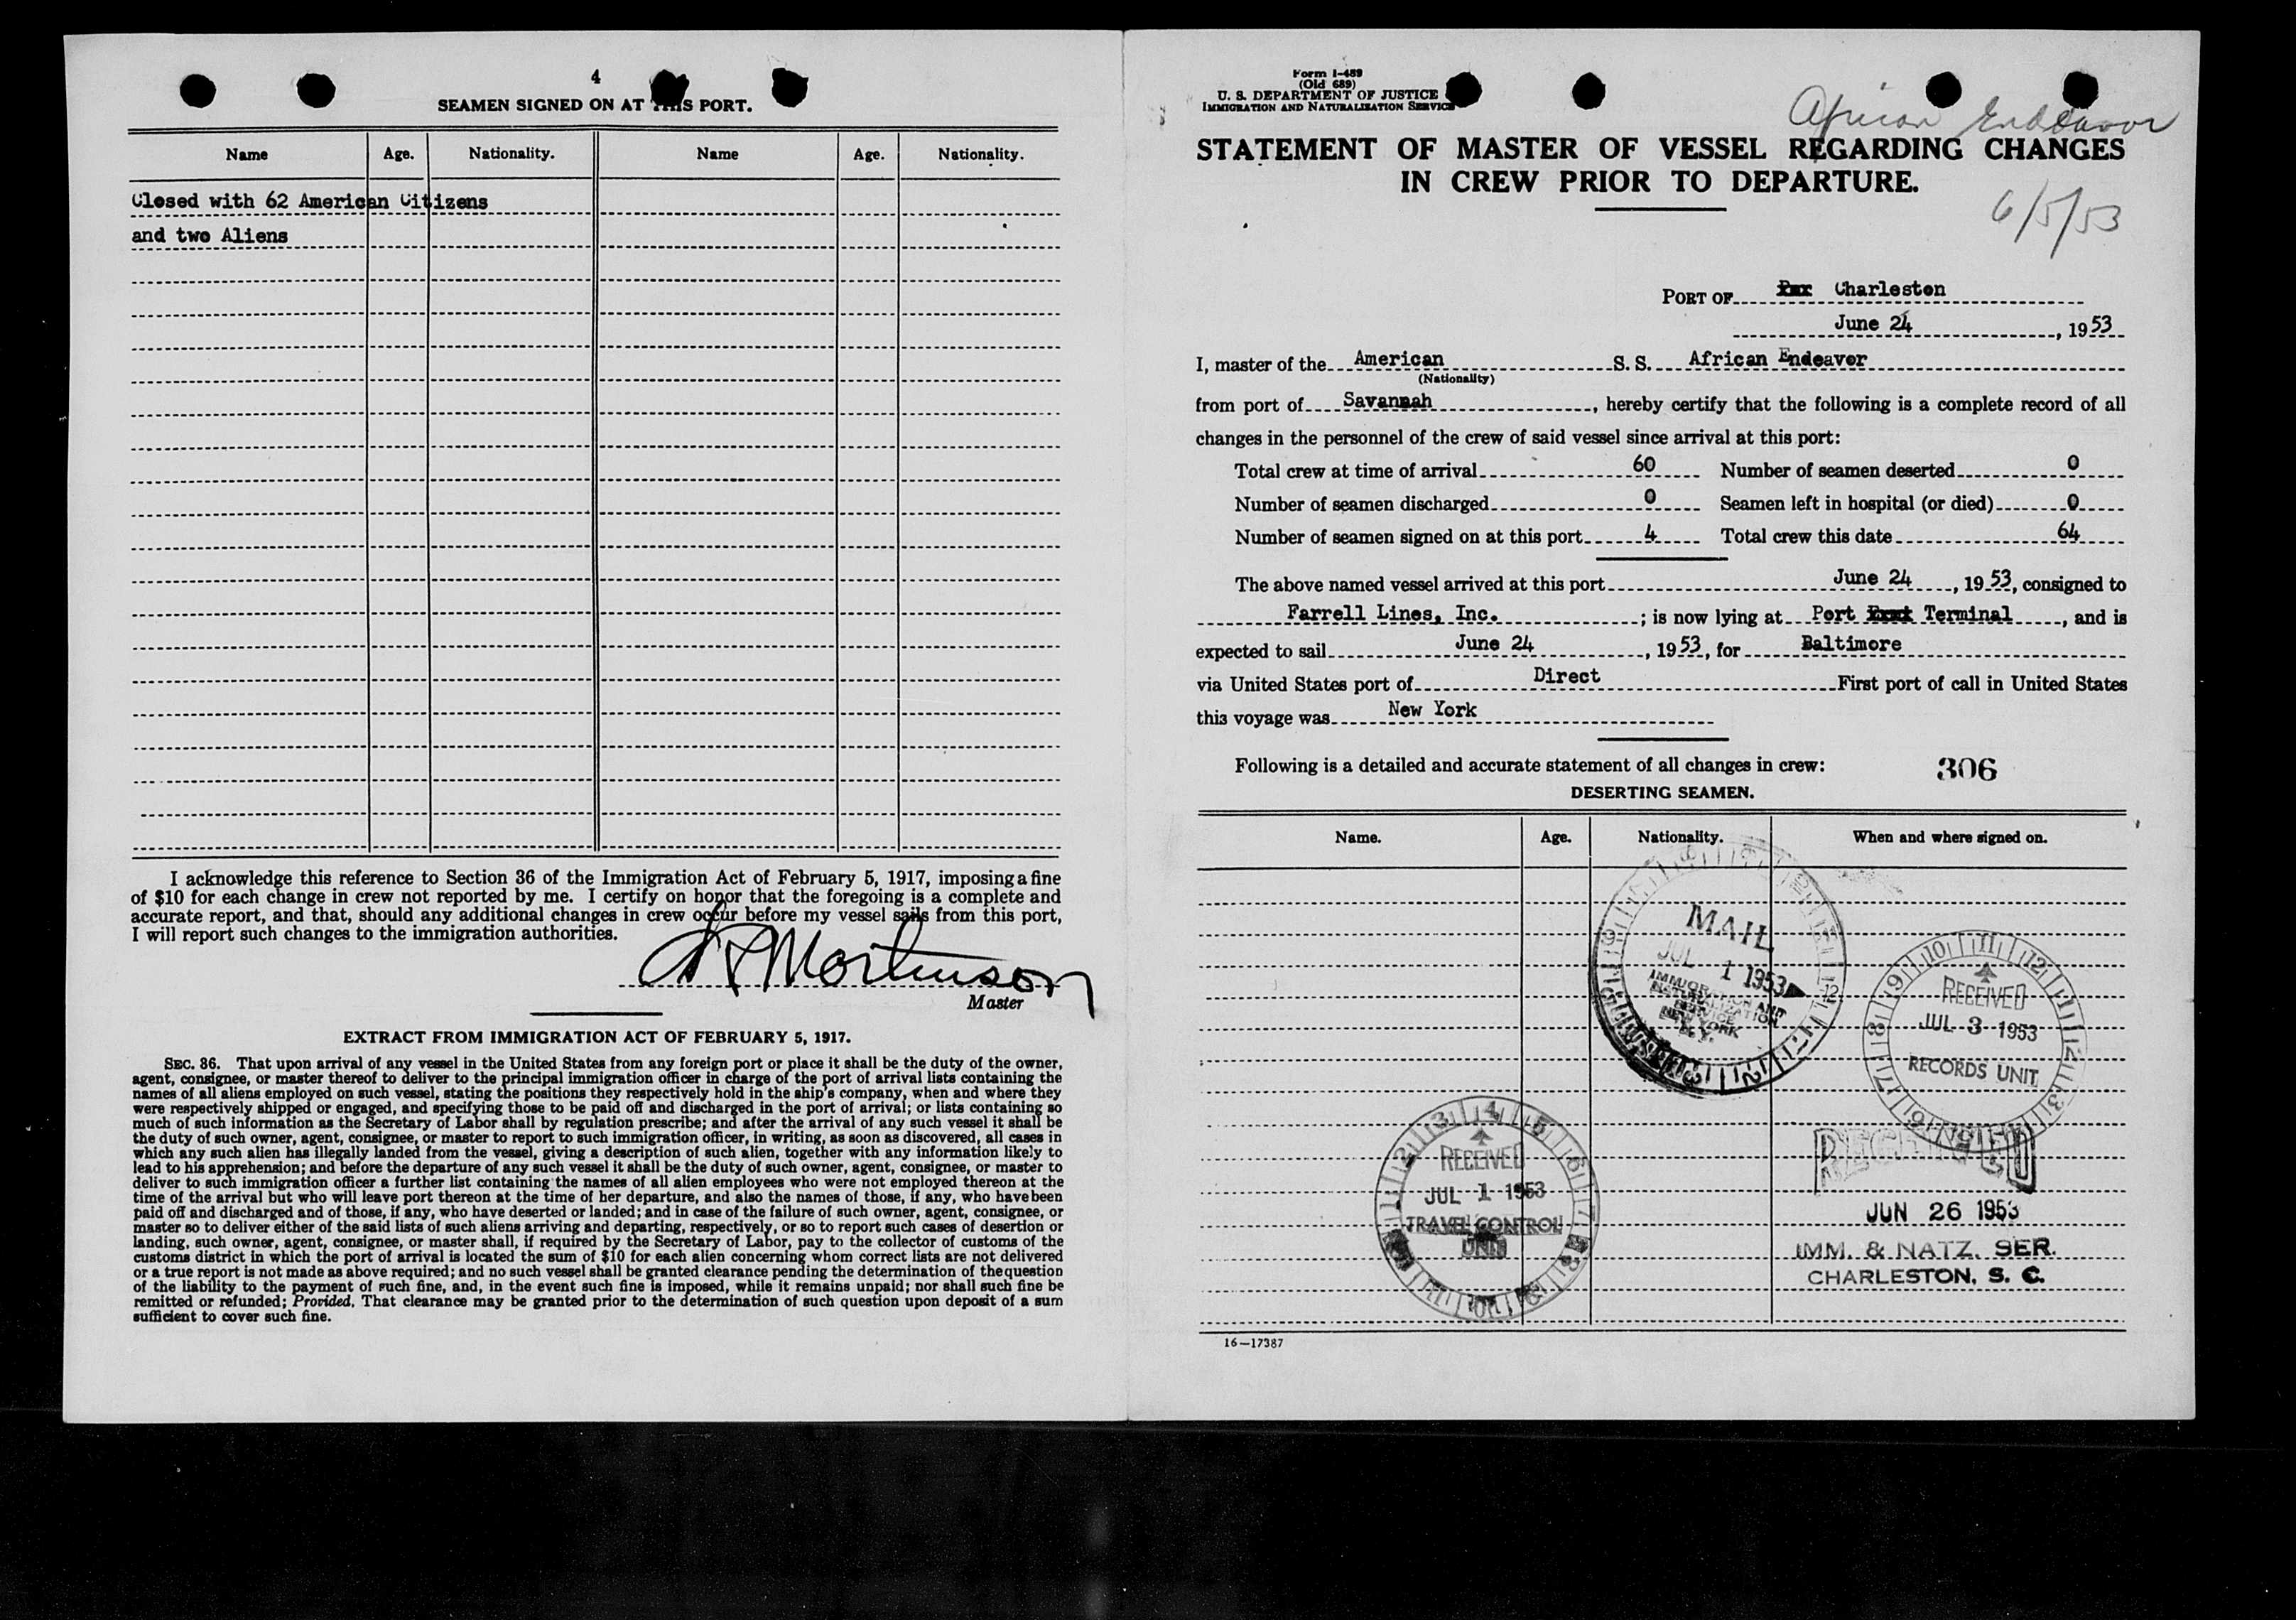 4
SEAMEN SIGNED ON AT THIS PORT.
Name Age. Nationality. Name Age. Nationality.
Closed with 62 American Citizens
and two Aliens
I acknowledge this reference to Section 36 of the Immigration Act of February 5, 1917, imposing a fine
of $10 for each change in crew not reported by me. I certify on honor that the foregoing is a complete and
accurate report, and that, should any additional changes in crew occur before my vessel sails from this port,
I will report such changes to the immigration authorities.
Mortenson
Master
EXTRACT FROM IMMIGRATION ACT OF FEBRUARY 5, 1917.
SEC. 36. That upon arrival of any vessel in the United States from any foreign port or place it shall be the duty of the owner,
agent, consignee, or master thereof to deliver to the principal immigration officer in charge of the port of arrival lists containing the
names of all aliens employed on such vessel, stating the positions they respectively hold in the ship's company, when and where they
were respectively shipped or engaged, and specifying those to be paid off and discharged in the port of arrival; or lists containing so
much of such information as the Secretary of Labor shall by regulation prescribe; and after the arrival of any such vessel it shall be
the duty of such owner, agent, consignee, or master to report to such immigration officer, in writing, as soon as discovered, all cases in
which any such alien has illegally landed from the vessel, giving a description of such alien, together with any information likely to
lead to his apprehension; and before the departure of any such vessel it shall be the duty of such owner, agent, consignee, or master to
deliver to such immigration officer a further list containing the names of all alien employees who were not employed thereon at the
time of the arrival but who will leave port thereon at the time of her departure, and also the names of those, if any, who have been
paid off and discharged and of those, if any, who have deserted or landed; and in case of the failure of such owner, agent, consignee, or
master so to deliver either of the said lists of such aliens arriving and departing, respectively, or so to report such cases of desertion or
landing, such owner, agent, consignee, or master shall, if required by the Secretary of Labor, pay to the collector of customs of the
customs district in which the port of arrival is located the sum of $10 for each alien concerning whom correct lists are not delivered
or a true report is not made as above required; and no such vessel shall be granted clearance pending the determination of the question
of the liability to the payment of such fine, and, in the event such fine is imposed, while it remains unpaid; nor shall such fine be
remitted or refunded; Provided, That clearance may be granted prior to the determination of such question upon deposit of a sum
sufficient to cover such fine.
Form I-489
(Old 689)
U. S. DEPARTMENT OF JUSTICE
IMMIGRATION AND NATURALIZATION SERVICE
African Endeavor
STATEMENT OF MASTER OF VESSEL REGARDING CHANGES
IN CREW PRIOR TO DEPARTURE.
6/5/53
PORT OF Charleston
June 24, 1953
I, master of the American S. S. African Endeavor
(Nationality)
from port of Savannah, hereby certify that the following is a complete record of all
changes in the personnel of the crew of said vessel since arrival at this port:
Total crew at time of arrival 60 Number of seamen deserted 0
Number of seamen discharged 0 Seamen left in hospital (or died) 0
Number of seamen signed on at this port 4 Total crew this date 64
The above named vessel arrived at this port June 24, 1953, consigned to
Farrell Lines, Inc.; is now lying at Port Terminal, and is
expected to sail June 24, 1953, for Baltimore
via United States port of Direct First port of call in United States
this voyage was New York
Following is a detailed and accurate statement of all changes in crew: 306
DESERTING SEAMEN.
Name. Age. Nationality. When and where signed on.
MAIL
JUL 1 1953
IMMIGRATION AND
NATURALIZATION
SERVICE
NEW YORK
N.Y.
RECEIVED
JUL 3 1953
RECORDS UNIT
RECEIVED
JUL 1 1953
TRAVEL CONTROL
UNIT
RECEIVED
JUN 26 1953
IMM. & NATZ. SER.
CHARLESTON, S. C.
16—17387